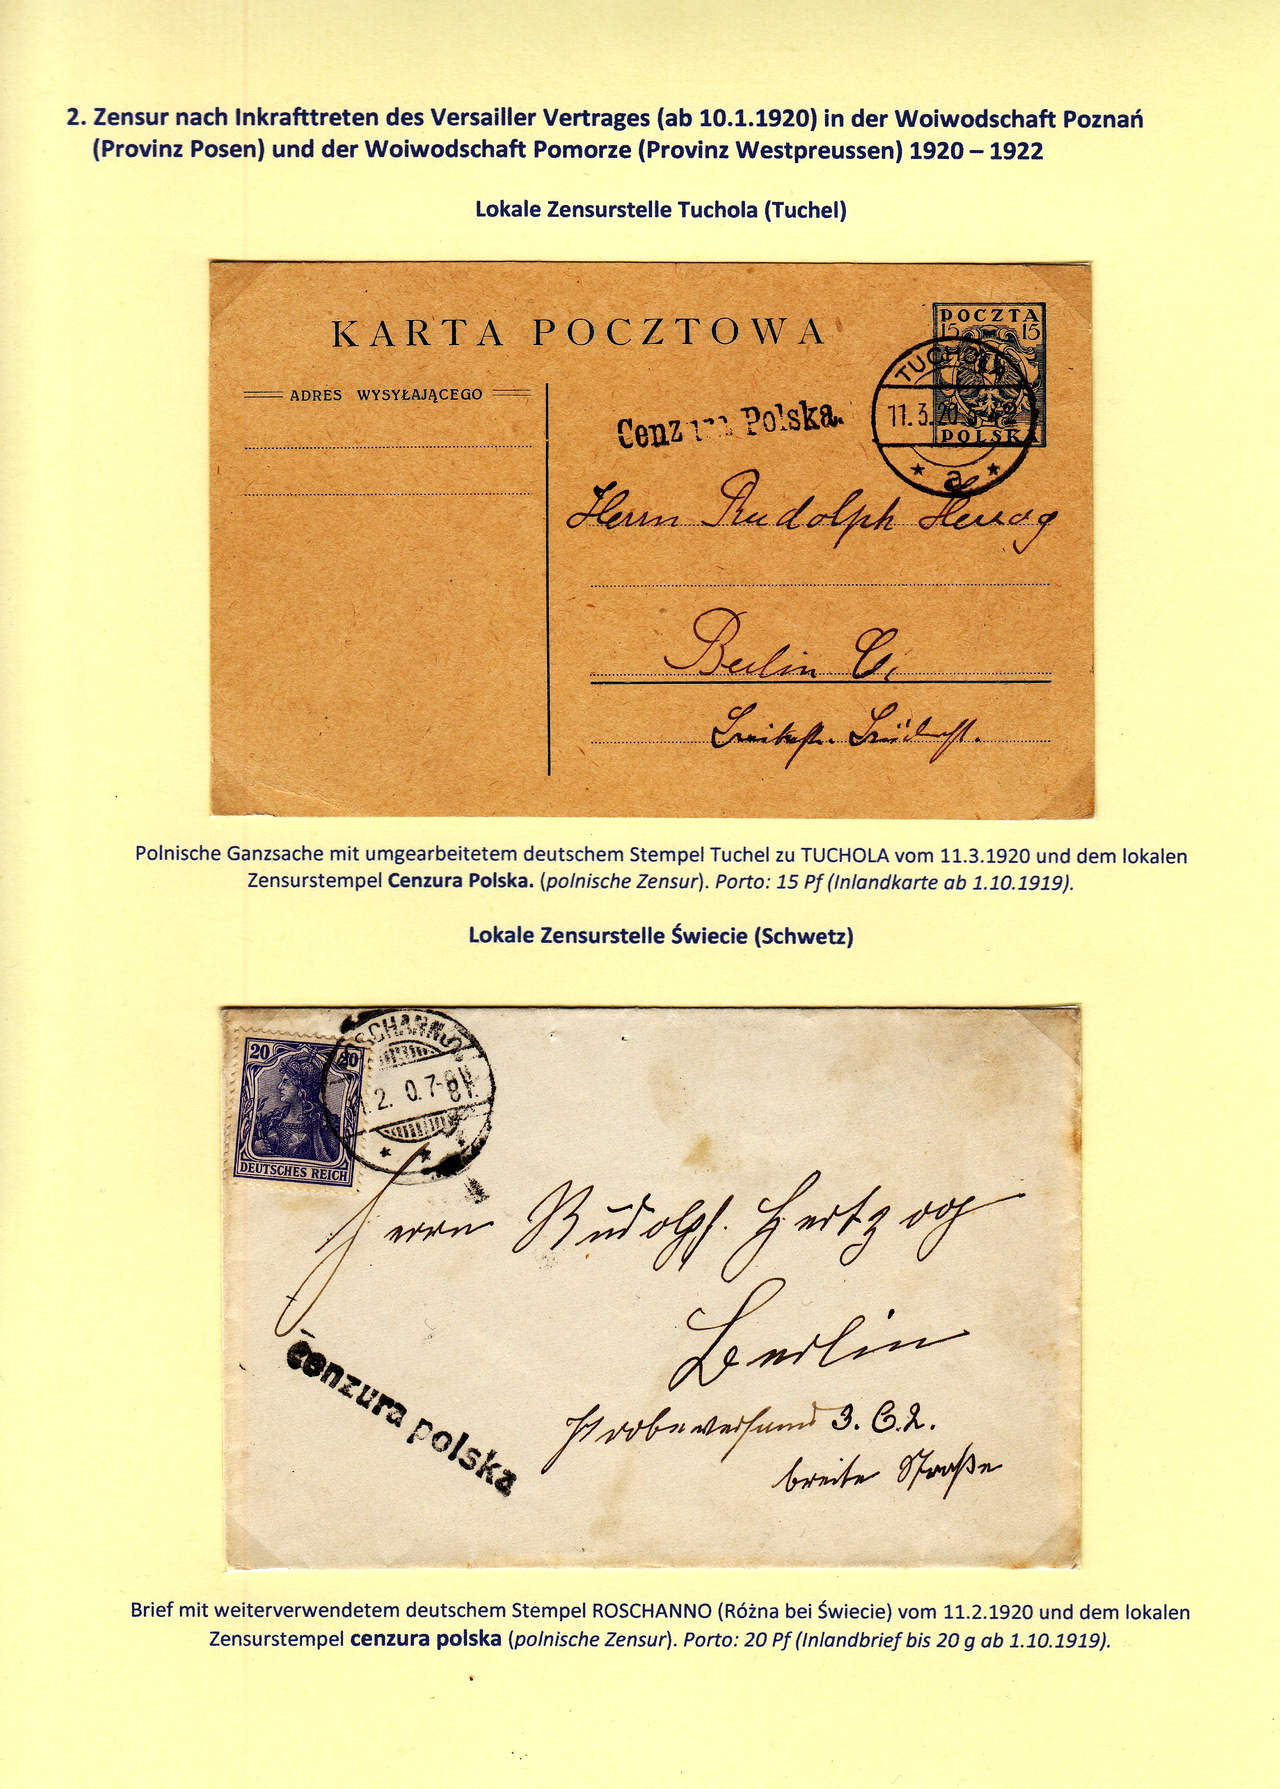 2. Zensur nach Inkrafttreten des Versailler Vertrages (ab 10.1.1920) in der Woiwodschaft Poznań
(Provinz Posen) und der Woiwodschaft Pomorze (Provinz Westpreussen) 1920 – 1922
Lokale Zensurstelle Tuchola (Tuchel)
KARTA POCZTOWA
POCZTA
15 15
POLSKA
TUCHOLA
11.3.20
a
ADRES WYSYŁAJĄCEGO
Cenzura Polska.
Herrn Rudolph Herzog
Berlin C,
Polnische Ganzsache mit umgearbeitetem deutschem Stempel Tuchel zu TUCHOLA vom 11.3.1920 und dem lokalen
Zensurstempel Cenzura Polska. (polnische Zensur). Porto: 15 Pf (Inlandkarte ab 1.10.1919).
Lokale Zensurstelle Świecie (Schwetz)
20 20
DEUTSCHES REICH
ROSCHANNO
2. 0.7-8V.
Herrn Rudolph Hertzog
Berlin
cenzura polska
Probeversand 3. C.2.
breite Straße
Brief mit weiterverwendetem deutschem Stempel ROSCHANNO (Różna bei Świecie) vom 11.2.1920 und dem lokalen
Zensurstempel cenzura polska (polnische Zensur). Porto: 20 Pf (Inlandbrief bis 20 g ab 1.10.1919).